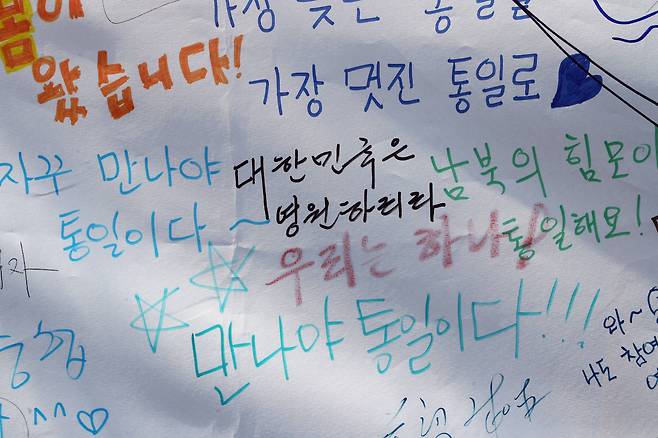 봄이
왔습니다!
가장 늦은 통일을
가장 멋진 통일로
자꾸 만나야
통일이다 ~
대한민국은
영원하리라
남북의 힘모아
통일해요!
우리는 하나!
만나야 통일이다!!!
와~
나도 참여
^^♡